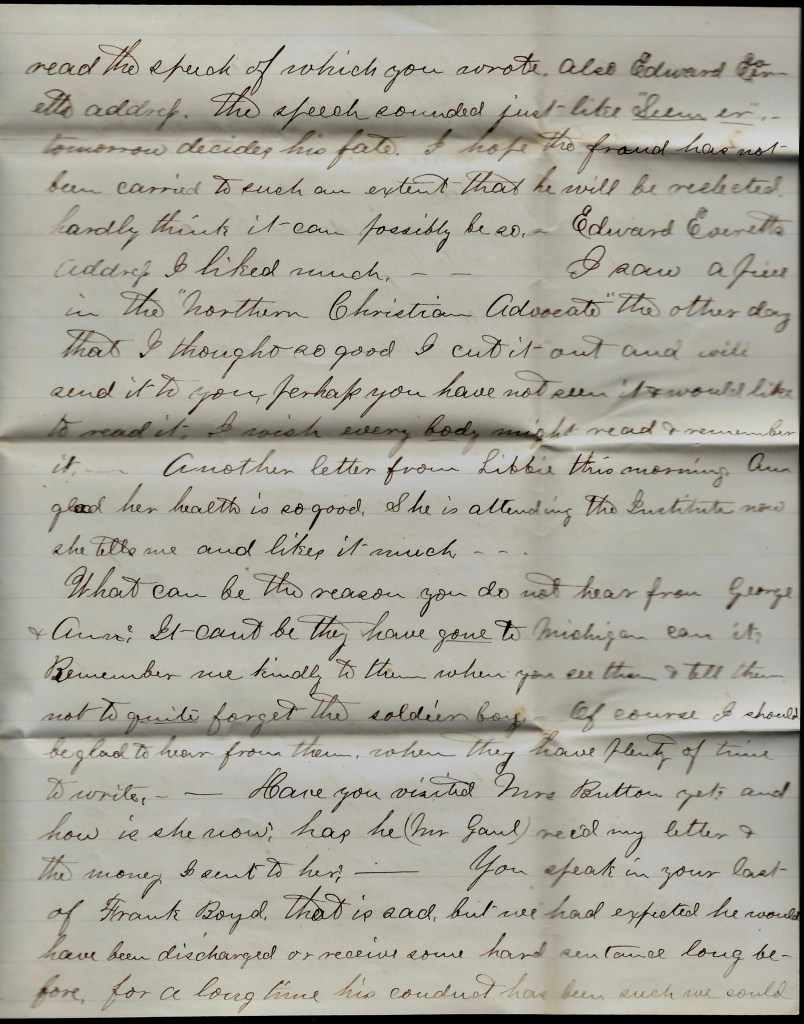 read the speech of which you wrote. Also Edward Ever-
etts address. The speech sounded just like "Seem er". -
tomorrow decides his fate. I hope the fraud has not
been carried to such an extent that he will be reelected.
hardly think it can possibly be so. - Edward Everetts
Address I liked much. - - I saw a piece
in the "Northern Christian Advocate" the other day
that I thought so good I cut it out and will
send it to you, perhaps you have not seen it & would like
to read it. I wish every body might read & remember
it. - Another letter from Libbie this morning. Am
glad her health is so good. She is attending the Institute now
she tells me and likes it much. - - -
What can be the reason you do not hear from George
& Ann? It cant be they have gone to Michigan can it?
Remember me kindly to them when you see them & tell them
not to quite forget the soldier boy. - Of course I should
be glad to hear from them, when they have plenty of time
to write. - - Have you visited Mrs Button yet? and
how is she now? has he (Mr Gaul) rec'd my letter &
the money I sent to her? - You speak in your last
of Frank Boyd. That is sad, but we had expected he would
have been discharged or receive some hard sentance long be-
fore, for a long time his conduct has been such we could